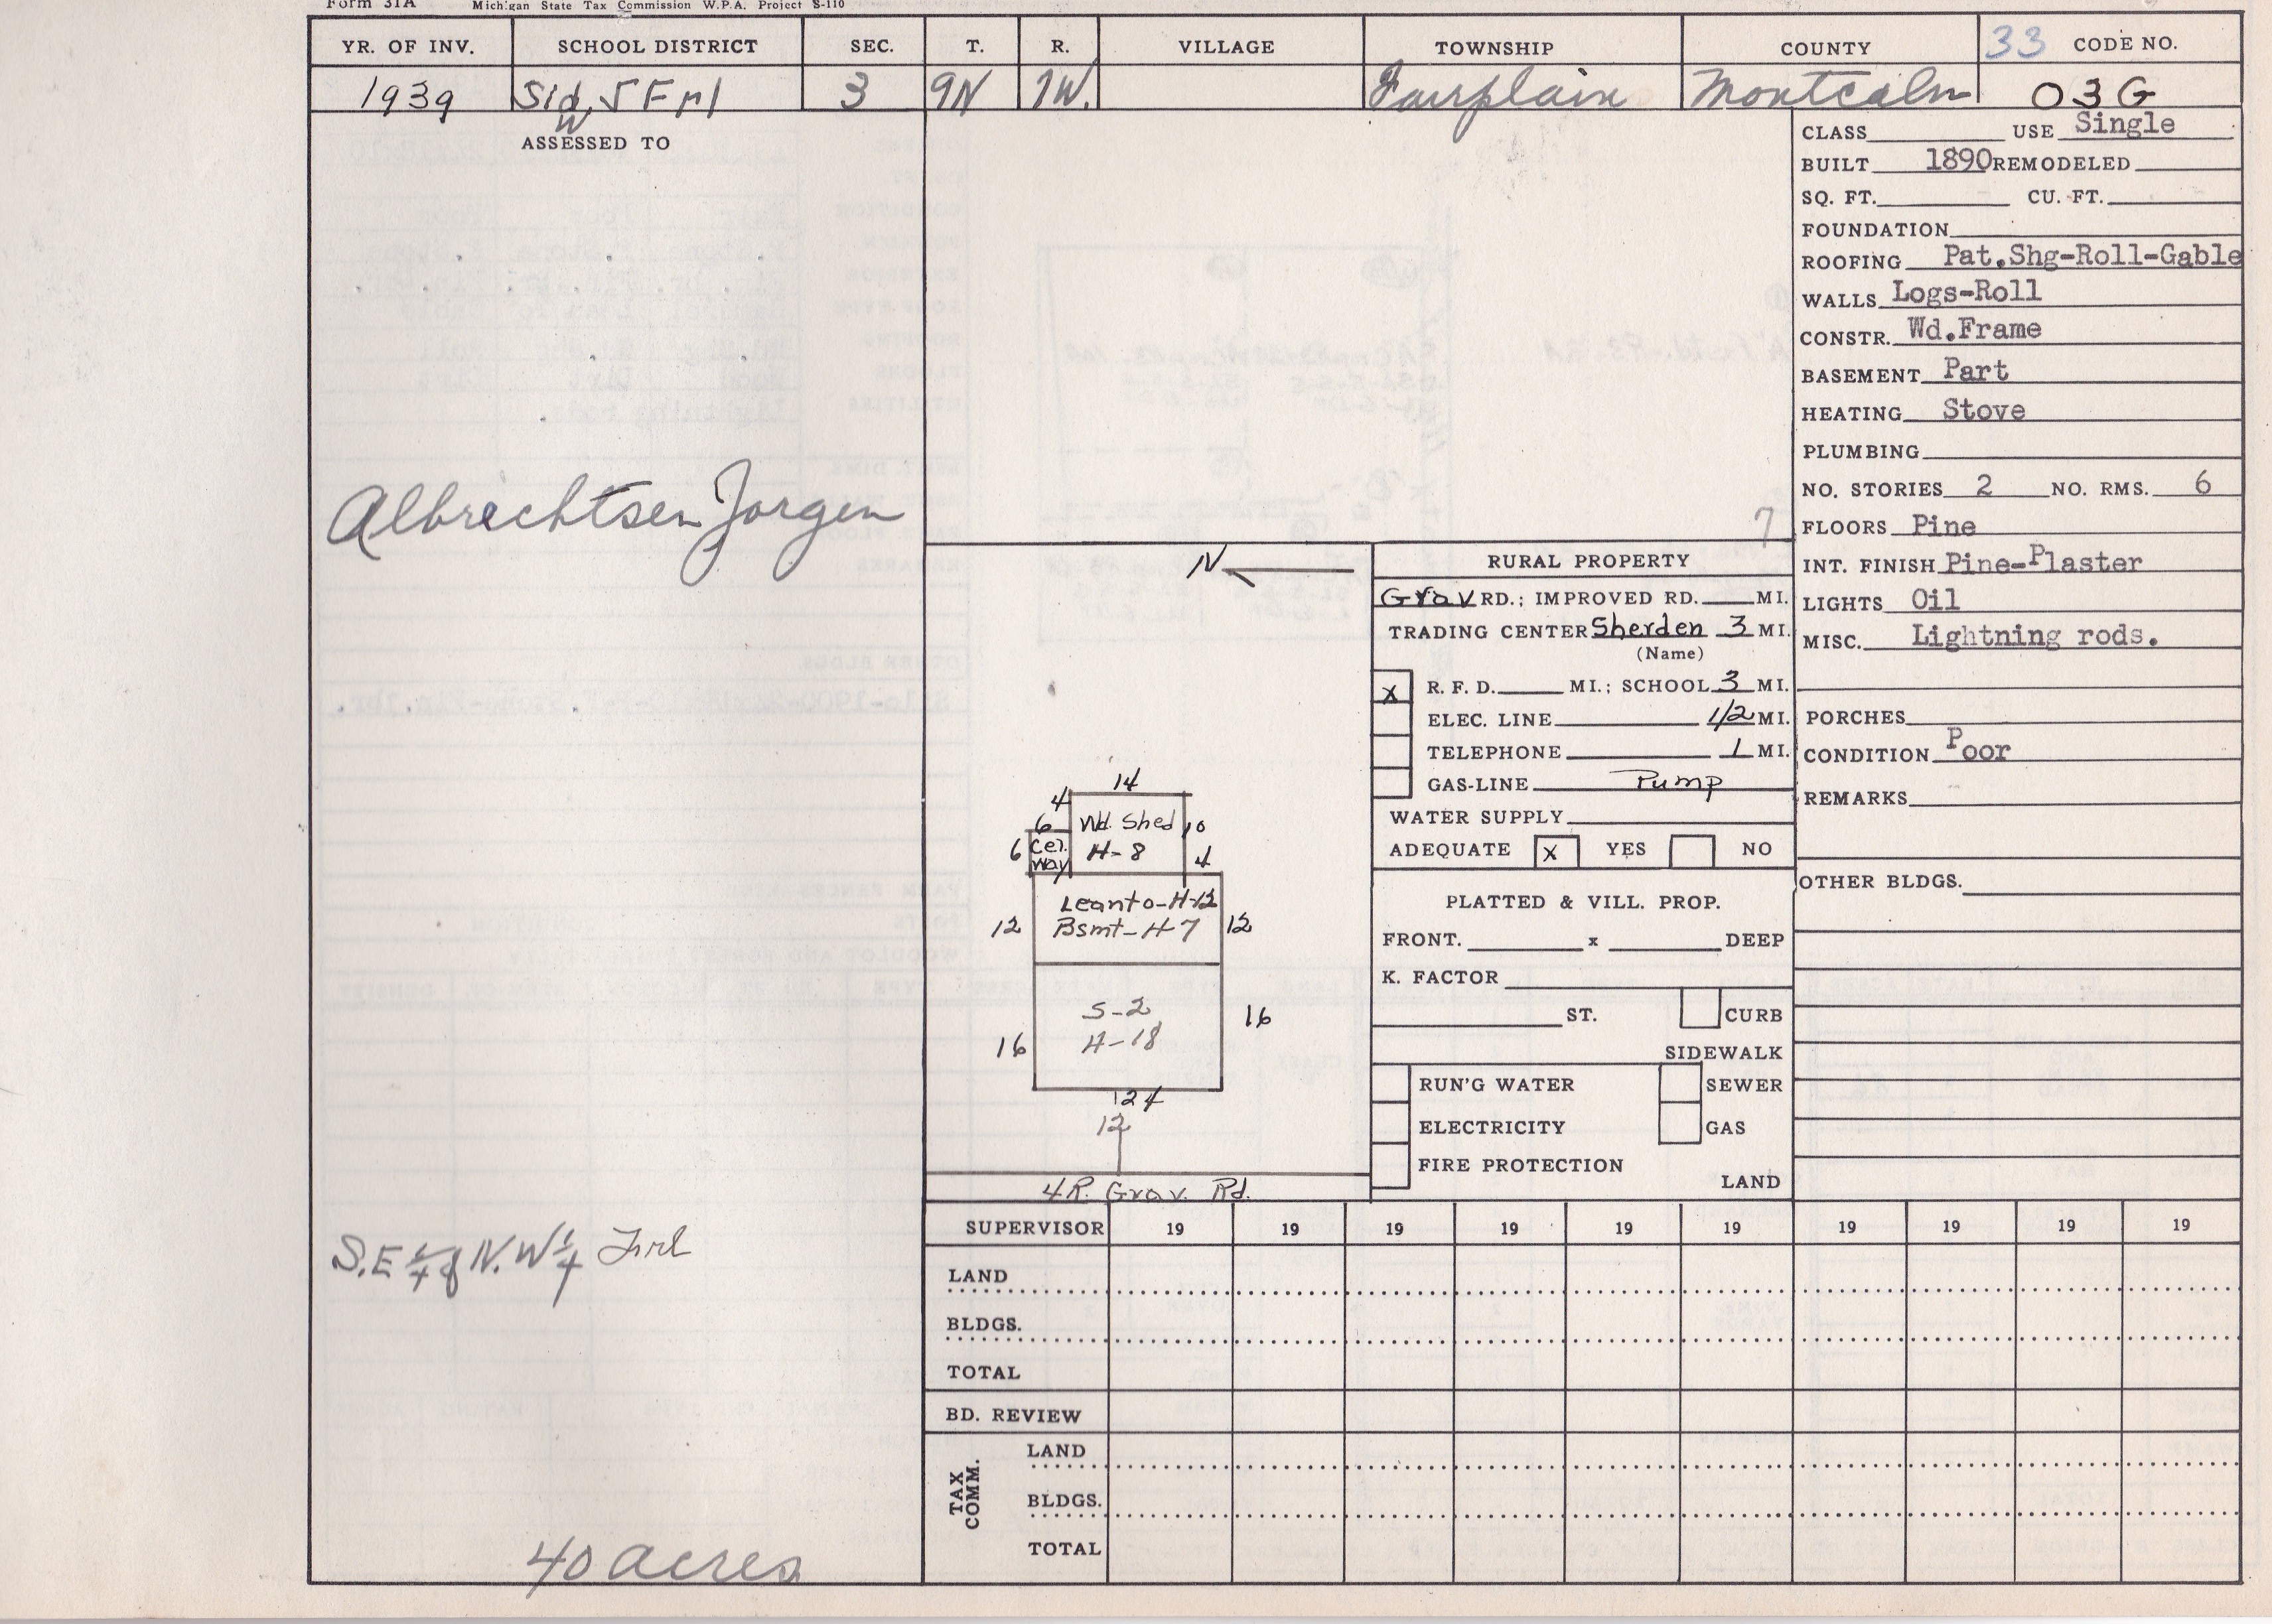 Form 31A Michigan State Tax Commission W.P.A. Project S-110
YR. OF INV. SCHOOL DISTRICT SEC. T. R. VILLAGE TOWNSHIP COUNTY 33 CODE NO.
1939 Sid W 5 Frl 3 9N 7W. Fairplain Montcalm 03G
ASSESSED TO
Albrechtsen Jorgen
S.E 1/4 of N.W 1/4 Frl
40 acres
N
14
4
6
Wd. Shed 10
6 Cel. Way H-8 4
Leanto-H-12
12 Bsmt-H-7 12
S-2
16 H-18 16
24
12
4R. Grav. Rd.
7
RURAL PROPERTY
Grav RD.; IMPROVED RD. MI.
TRADING CENTER Sherden 3 MI.
(Name)
X R. F. D. MI.; SCHOOL 3 MI.
ELEC. LINE 1/2 MI.
TELEPHONE 1 MI.
GAS-LINE Pump
WATER SUPPLY
ADEQUATE X YES NO
PLATTED & VILL. PROP.
FRONT. x DEEP
K. FACTOR
ST. CURB
SIDEWALK
RUN'G WATER SEWER
ELECTRICITY GAS
FIRE PROTECTION
LAND
CLASS USE Single
BUILT 1890 REMODELED
SQ. FT. CU. FT.
FOUNDATION
ROOFING Pat.Shg-Roll-Gable
WALLS Logs-Roll
CONSTR. Wd.Frame
BASEMENT Part
HEATING Stove
PLUMBING
NO. STORIES 2 NO. RMS. 6
FLOORS Pine
INT. FINISH Pine-Plaster
LIGHTS Oil
MISC. Lightning rods.
PORCHES
CONDITION Poor
REMARKS
OTHER BLDGS.
SUPERVISOR 19 19 19 19 19 19 19 19 19 19
LAND
BLDGS.
TOTAL
BD. REVIEW
TAX COMM.
LAND
BLDGS.
TOTAL